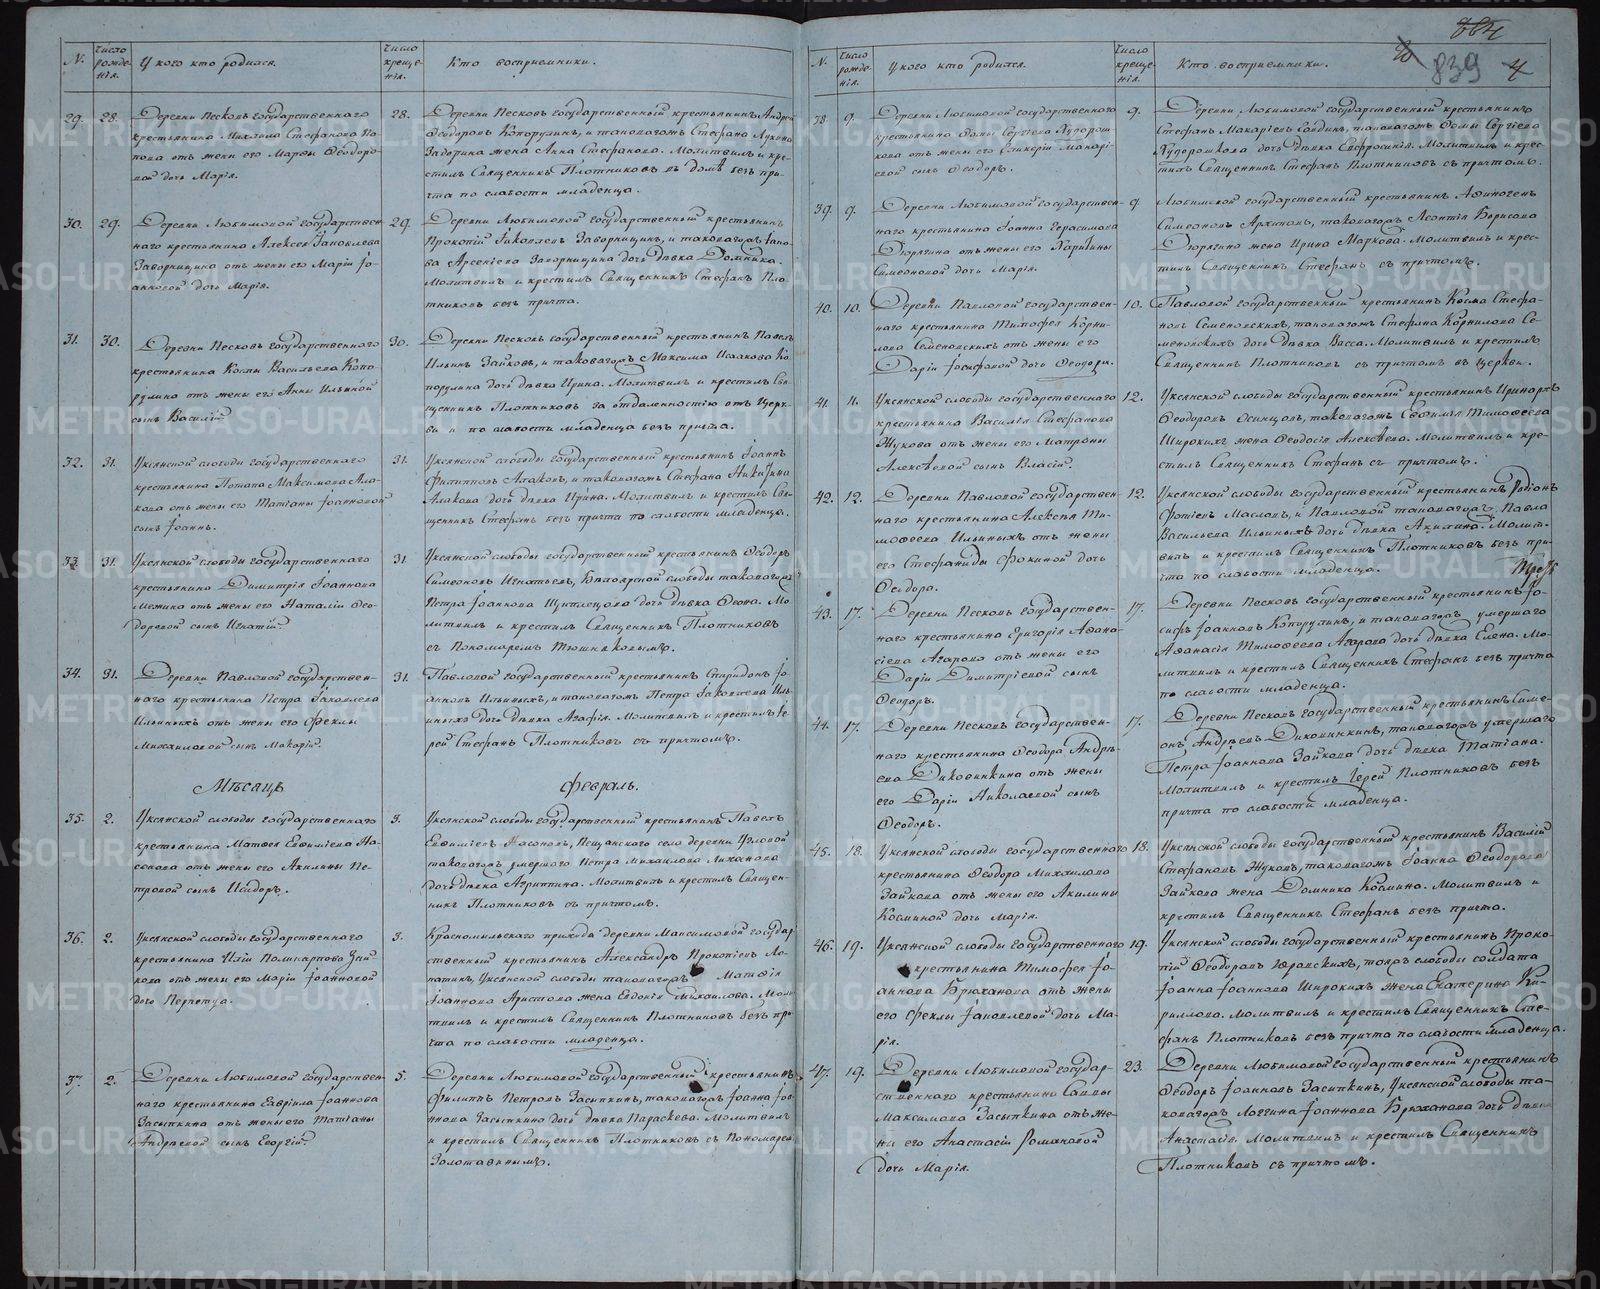 N.
Число рожде-нія.
У кого кто родился.
Число креще-нія.
Кто восприемники.
29.
28.
Деревни Песковъ государственнаго
крестьянина Михаила Стефанова По-
пова отъ жены его Марѳы Ѳеодоро-
вой дочь Марія.
28.
Деревни Песковъ государственный крестьянинъ Андрей
Ѳеодоровъ Копорулинъ, и таковагожъ Стефана Лукина
Заворина жена Анна Стефанова. Молитвилъ и кре-
стилъ Священникъ Плотниковъ въ домѣ безъ при-
чта по слабости младенца.
30.
29.
Деревни Любимовой государствен-
наго крестьянина Алексея Іаковлева
Заворницина отъ жены его Маріи Іо-
анновой дочь Марія.
29.
Деревни Любимовой государственный крестьянинъ
Прокопій Іаковлевъ Заворницинъ, и таковагожъ Іако-
ва Арсеніева Заворницина дочь дѣвка Домника.
Молитвилъ и крестилъ Священникъ Стефанъ Пло-
тниковъ безъ причта.
31.
30.
Деревни Песковъ государственнаго
крестьянина Космы Васильева Копо-
рулина отъ жены его Анны Ильиной
сынъ Василій.
30.
Деревни Песковъ государственный крестьянинъ Павелъ
Ильинъ Зайковъ, и таковагожъ Максима Исакова Ко-
порулина дочь дѣвка Ирина. Молитвилъ и крестилъ Свя-
щенникъ Плотниковъ за отдаленностію отъ Церк-
ви и по слабости младенца безъ причта.
32.
31.
Уксянской слободы государственнаго
крестьянина Потапа Максимова Ала-
кова отъ жены его Татіаны Іоанновой
сынъ Іоаннъ.
31.
Уксянской слободы государственный крестьянинъ Іоаннъ
Филипповъ Алаковъ, и таковагожъ Стефана Никитина
Алакова дочь дѣвка Ирина. Молитвилъ и крестилъ Свя-
щенникъ Стефанъ безъ причта по слабости младенца.
33.
31.
Уксянской слободы государственнаго
крестьянина Димитрія Іоаннова
Межина отъ жены его Наталіи Ѳео-
доровой сынъ Игнатій.
31.
Уксянской слободы государственный крестьянинъ Ѳеодоръ
Симеоновъ Игнатьевъ, Бѣлоярской слободы таковагожъ
Петра Іоаннова дочь дѣвка Ѳеона. Мо-
литвилъ и крестилъ Священникъ Плотниковъ
съ Пономаремъ Тюшняковымъ.
34.
31.
Деревни Павловой государствен-
наго крестьянина Петра Іаковлева
Ильиныхъ отъ жены его Ѳеклы
Михайловой сынъ Макарій.
31.
Павловой государственный крестьянинъ Спиридонъ Іо-
анновъ Ильиныхъ, и таковагожъ Петра Іаковлева Иль-
иныхъ дочь дѣвка Агафія. Молитвилъ и крестилъ Іе-
рей Стефанъ Плотниковъ съ причтомъ.
Мѣсяцъ
Февраль.
35.
2.
Уксянской слободы государственнаго
крестьянина Матѳея Евѳиміева На-
сонова отъ жены его Акилины Пе-
тровой сынъ Исидоръ.
3.
Уксянской слободы государственный крестьянинъ Павелъ
Евѳиміевъ Насоновъ, Пещанскаго села деревни Угловой
таковагожъ умершаго Петра Михаилова Лиханова
дочь дѣвка Агриппина. Молитвилъ и крестилъ Священ-
никъ Плотниковъ съ причтомъ.
36.
2.
Уксянской слободы государственнаго
крестьянина Иліи Поликарпова Зай-
кова отъ жены его Маріи Іоанновой
дочь Перпетуа.
3.
Красномыльскаго прихода деревни Максимовой государ-
ственный крестьянинъ Александръ Прокопіевъ Ло-
патинъ, Уксянской слободы таковагожъ Матѳія
Іоаннова Аристова жена Евдокія Михаилова. Моли-
твилъ и крестилъ Священникъ Плотниковъ безъ при-
чта по слабости младенца.
37.
2.
Деревни Любимовой государствен-
наго крестьянина Гавріила Іоаннова
Засыпкина отъ жены его Татіаны
Андреевой сынъ Георгій.
5.
Деревни Любимовой государственный крестьянинъ
Филиппъ Петровъ Засыпкинъ, таковагожъ Іоанна Іоа-
ннова Засыпкина дочь дѣвка Параскева. Молитвилъ
и крестилъ Священникъ Плотниковъ съ Пономаремъ
Золотавинымъ.
839
4
N.
Число рожде-нія.
У кого кто родился.
Число креще-нія.
Кто восприемники.
38.
9.
Деревни Любимовой государственнаго
крестьянина Ѳомы Сергіева Худорож-
кова отъ жены его Гликеріи Макарі-
евой сынъ Ѳеодоръ.
9.
Деревни Любимовой государственный крестьянинъ
Стефанъ Макаріевъ таковагожъ Ѳомы Сергіева
Худорожкова дочь дѣвка Евфросинія. Молитвилъ и крес-
тилъ Священникъ Стефанъ Плотниковъ съ причтомъ.
39.
9.
Деревни Любимовой государствен-
наго крестьянина Іоанна Герасимова
Дюрягина отъ жены его Харитины
Симеоновой дочь Марія.
9.
Любимовой государственный крестьянинъ Аѳиногенъ
Симеоновъ таковагожъ Леонтія Борисова
Дюрягина жена Ирина Маркова. Молитвилъ и крес-
тилъ Священникъ Стефанъ съ причтомъ.
40.
10.
Деревни Павловой государствен-
наго крестьянина Тимоѳея Корни-
лова Семеновскихъ отъ жены его
Даріи Іосифовой дочь Ѳеодора.
10.
Павловой государственный крестьянинъ Косма Стефа-
новъ Семеновскихъ, таковагожъ Стефана Корнилова Се-
меновскихъ дочь дѣвка Васса. Молитвилъ и крестилъ
Священникъ Плотниковъ съ причтомъ въ Церкви.
41.
11.
Уксянской слободы государственнаго
крестьянина Василія Стефанова
Жукова отъ жены его Матроны
Алексѣевой сынъ Власій.
12.
Уксянской слободы государственный крестьянинъ Иринархъ
Ѳеодоровъ Осинцовъ, таковагожъ Евѳимія Тимоѳеева
Широкихъ жена Ѳеодосія Алексѣева. Молитвилъ и кре-
стилъ Священникъ Стефанъ съ причтомъ.
42.
12.
Деревни Павловой государствен-
наго крестьянина Алексѣя Ти-
моѳеева Ильиныхъ отъ жены
его Стефаниды Фокиной дочь
Ѳеодора.
12.
Уксянской слободы государственный крестьянинъ Родіонъ
Фотіевъ Масловъ, и Павловой таковагожъ Павла
Васильева Ильиныхъ дочь дѣвка Акилина. Молит-
вилъ и крестилъ Священникъ Плотниковъ безъ при-
чта по слабости младенца.
43.
17.
Деревни Песковъ государствен-
наго крестьянина Григорія Аѳана-
сіева Агарова отъ жены его
Даріи Димитріевой сынъ
Ѳеодоръ.
17.
Деревни Песковъ государственный крестьянинъ Іо-
сифъ Іоанновъ Копорулинъ, и таковагожъ умершаго
Аѳанасія Тимоѳеева Агарова дочь дѣвка Елена. Мо-
литвилъ и крестилъ Священникъ Стефанъ безъ причта
по слабости младенца.
44.
17.
Деревни Песковъ государствен-
наго крестьянина Ѳеодора Андре-
ева Диковинкина отъ жены
его Даріи Николаевой сынъ
Ѳеодоръ.
17.
Деревни Песковъ государственный крестьянинъ Симе-
онъ Андреевъ Диковинкинъ, таковагожъ умершаго
Петра Іоаннова Зайкова дочь дѣвка Татіана.
Молитвилъ и крестилъ Іерей Плотниковъ безъ
причта по слабости младенца.
45.
18.
Уксянской слободы государственнаго
крестьянина Ѳеодора Михаилова
Зайкова отъ жены его Акилины
Косминой дочь Марія.
18.
Уксянской слободы государственный крестьянинъ Василій
Стефановъ Жуковъ, таковагожъ Іоанна Ѳеодорова
Зайкова жена Домника Космина. Молитвилъ и
крестилъ Священникъ Стефанъ безъ причта.
46.
19.
Уксянской слободы государственнаго
крестьянина Тимоѳея Іо-
аннова Брюханова отъ жены
его Ѳеклы Іаковлевой дочь Ма-
рія.
19.
Уксянской слободы государственный крестьянинъ Проко-
пій Ѳеодоровъ Юровскихъ, тояжъ слободы солдата
Іоанна Іоаннова Широкихъ жена Екатерина Ки-
риллова. Молитвилъ и крестилъ Священникъ Сте-
фанъ Плотниковъ безъ причта по слабости младенца.
47.
19.
Деревни Любимовой государ-
ственнаго крестьянина Саввы
Максимова Засыпкина отъ же-
ны его Анастасіи Романовой
дочь Марія.
23.
Деревни Любимовой государственный крестьянинъ
Ѳеодоръ Іоанновъ Засыпкинъ, Уксянской слободы та-
ковагожъ Логгина Іоаннова Брюханова дочь дѣвка
Анастасія. Молитвилъ и крестилъ Священникъ
Плотниковъ съ причтомъ.
METRIKI.GASO-URAL.RU